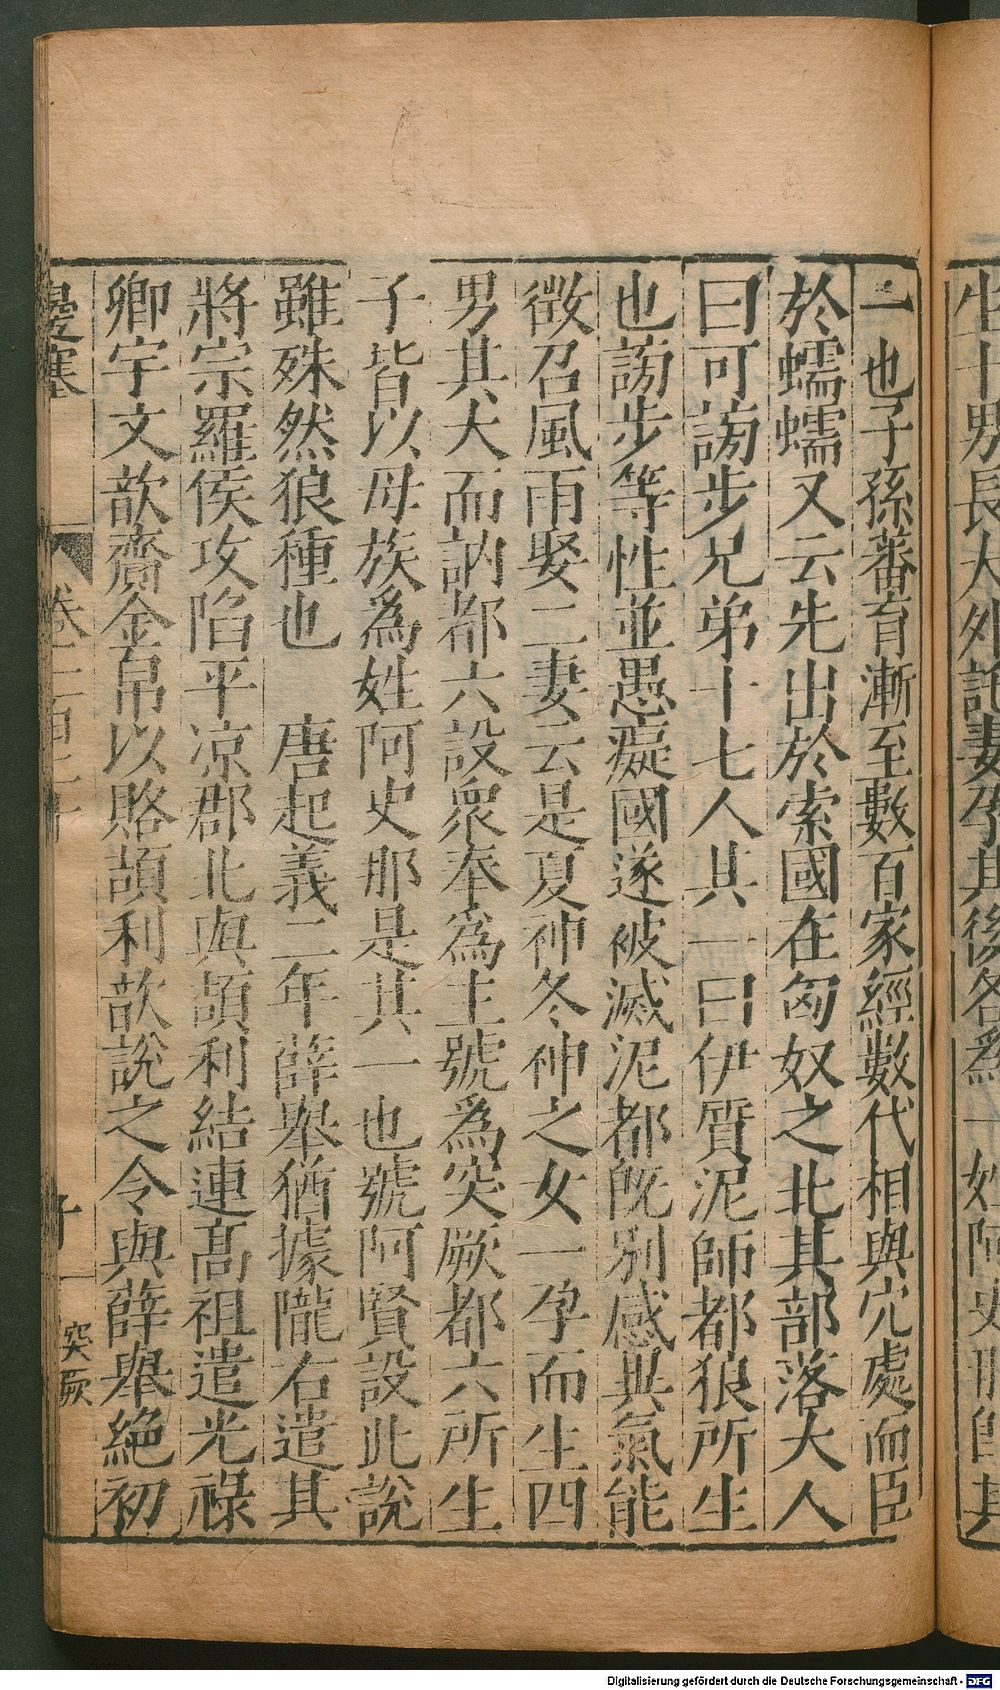 生十男長大外託妻孕其後各爲一姓阿史那即其
一也子孫蕃育漸至數百家經數代相與穴處而臣
於蠕蠕又云先出於索國在匈奴之北其部落大人
曰可謗步兄弟十七人其一曰伊質泥師都狼所生
也謗步等性並愚癡國遂被滅泥都旣別感異氣能
徵召風雨娶二妻云是夏神冬神之女一孕而生四
男其大而訥都六設衆奉爲主號爲突厥都六所生
子皆以母族爲姓阿史那是其一也號阿賢設此說
雖殊然狼種也　唐起義二年薛舉猶據隴右遣其
將宗羅侯攻陷平凉郡北與頡利結連髙祖遣光祿
卿宇文歆齎金帛以賂頡利歆說之令與薛舉絶初
邊塞
卷二百二十
十一
突厥
Digitalisierung gefördert durch die Deutsche Forschungsgemeinschaft - DFG